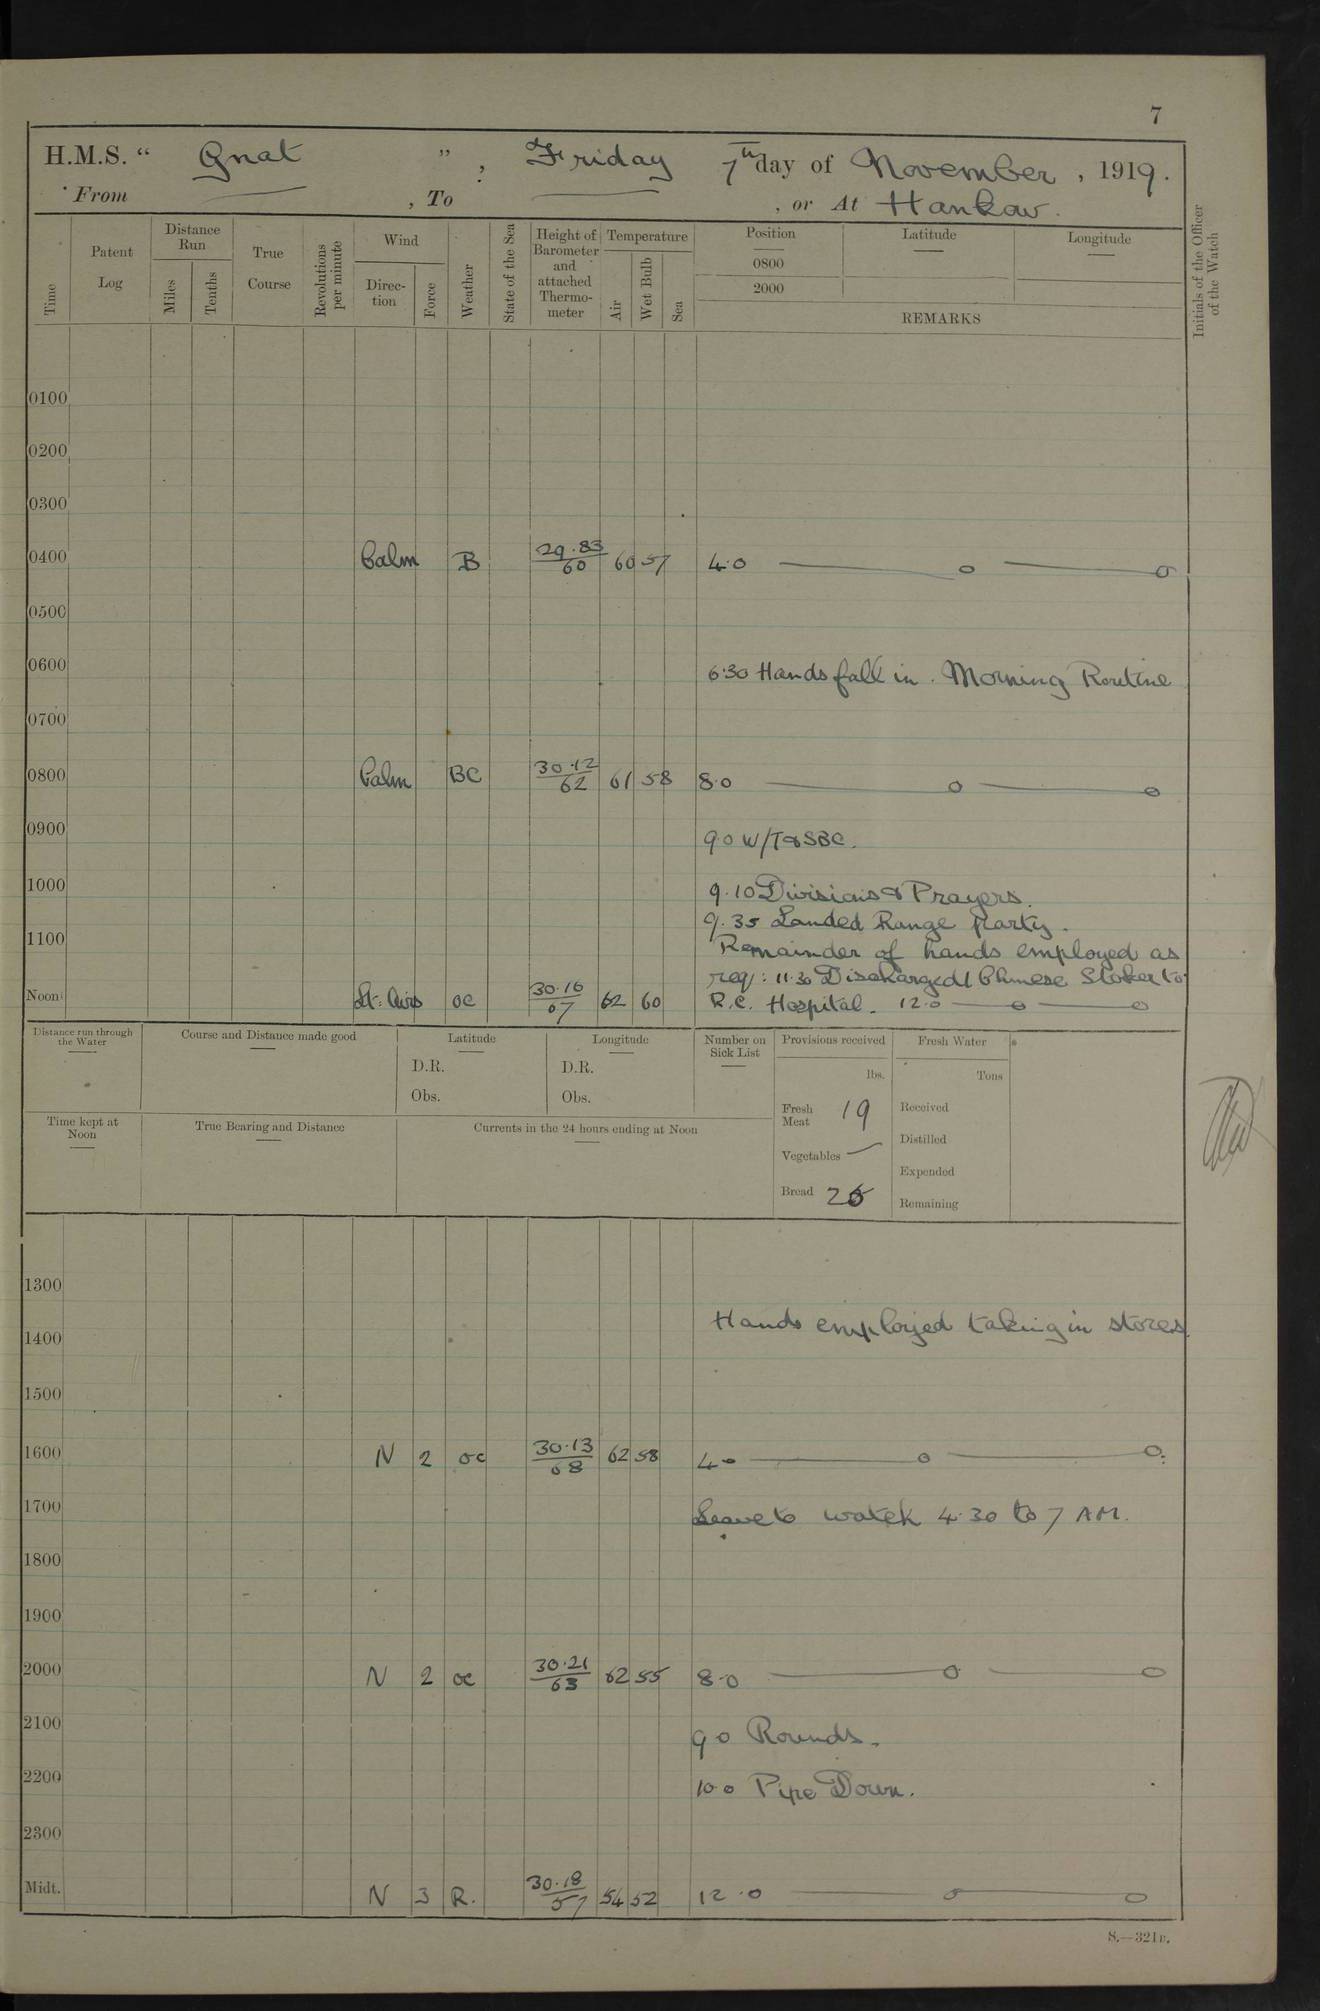 7
H.M.S. “ Gnat ” , Friday 7th day of November , 1919.
From — , To — , or At Hankow.
Time
Patent Log
Distance Run
Miles
Tenths
True Course
Revolutions per minute
Wind
Direction
Force
Weather
State of the Sea
Height of Barometer and attached Thermometer
Temperature
Air
Wet Bulb
Sea
Position
0800
2000
Latitude
Longitude
REMARKS
Initials of the Officer of the Watch
0100
0200
0300
0400 Calm B 29.83/60 60 57 4.0 — o — o
0500
0600
6.30 Hands fall in. Morning Routine
0700
0800 Calm BC 30.12/62 61 58 8.0 — o — o
0900 9.0 W/T & SBC.
1000 9.10 Divisions & Prayers.
9.35 Landed Range party.
1100 Remainder of hands employed as
req: 11.30 Discharged 1 Chinese Stoker to
Noon Lt. Airs oc 30.16/67 62 60 R.C. Hospital. 12.0 — o — o
Distance run through the Water
Course and Distance made good
Latitude
D.R.
Obs.
Longitude
D.R.
Obs.
Number on Sick List
Provisions received
lbs.
Fresh Meat 19
Vegetables —
Bread 25
Fresh Water
Tons
Received
Distilled
Expended
Remaining
Time kept at Noon
True Bearing and Distance
Currents in the 24 hours ending at Noon
1300
Hands employed taking in stores
1400
1500
1600 N 2 oc 30.13/68 62 58 4.0 — o — o
1700 Leave to watch 4.30 to 7 AM.
1800
1900
2000 N 2 oc 30.21/63 62 55 8.0 — o — o
2100 9.0 Rounds.
2200 10.0 Pipe Down.
2300
Midt. N 3 R. 30.18/57 54 52 12.0 — o — o
S.—321B.